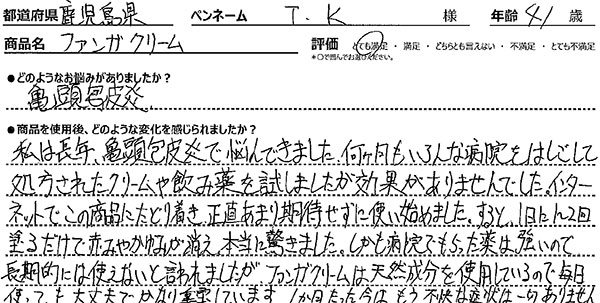 都道府県 鹿児島県 ペンネーム T.K 様 年齢 41 歳
商品名 ファンガクリーム 評価 とても満足 ・ 満足 ・ どちらとも言えない ・ 不満足 ・ とても不満足
*○で囲んでお選びください。
●どのようなお悩みがありましたか?
亀頭包皮炎
●商品を使用後、どのような変化を感じられましたか?
私は長年、亀頭包皮炎で悩んできました。何ヶ月もいろんな病院をはしごして
処方されたクリームや飲み薬を試しましたが効果がありませんでした。インター
ネットで、この商品にたどり着き、正直あまり期待せずに使い始めました。すると、1日に1、2回
塗るだけで赤みやかゆみが消え、本当に驚きました。しかも病院でもらった薬は、強いので
長期的には使えないと言われましたがファンガクリームは天然成分を使用しているので毎日
使っても大丈夫でかなり重宝しています。1か月たった今は、もう不快な症状は一切ありません